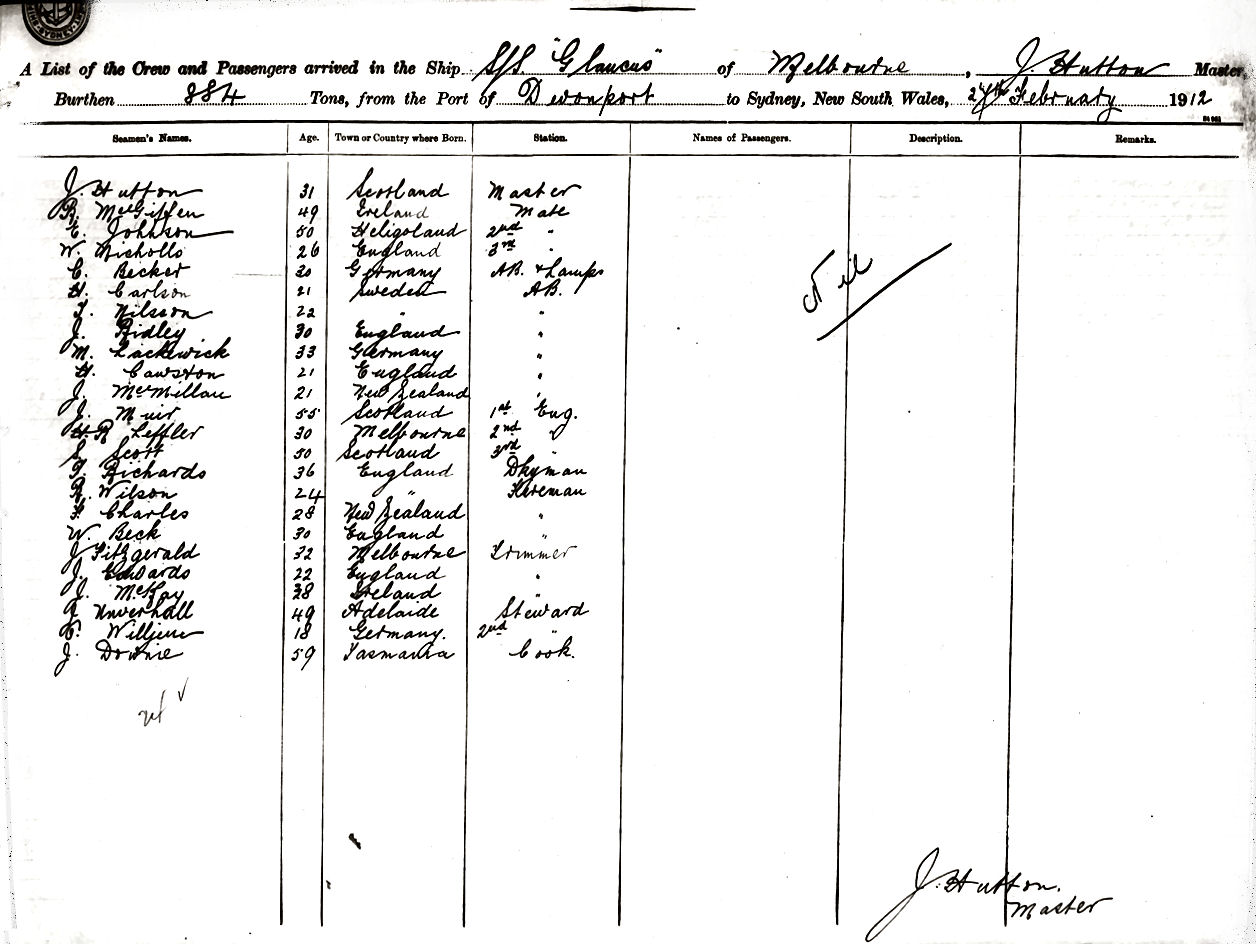 A List of the Crew and Passengers arrived in the Ship S/S "Glaucus" of Melbourne, J. Hutton Master,
Burthen 884 Tons, from the Port of Devonport to Sydney, New South Wales, February 1912
Seamen's Names. Age. Town or Country where Born. Station. Names of Passengers. Description. Remarks.
J. Hutton 31 Scotland Master
R. McGiffen 49 Ireland Mate
C. Johnson 50 Heligoland 2nd "
W. Nicholls 26 England 3rd "
C. Becker 30 Germany AB. & Lamps
H. Carlson 21 Sweden AB.
T. Nilsson 22 " "
J. Ridley 30 England "
M. Lackwick 33 Germany "
H. Cawston 21 England "
J. McMillan 21 New Zealand "
J. Muir 55 Scotland 1st Eng.
H. R. Leffler 30 Melbourne 2nd "
S. Scott 50 Scotland 3rd "
T. Richards 36 England Dkyman
R. Wilson 24 " Fireman
F. Charles 28 New Zealand "
W. Beck 30 England "
J. Fitzgerald 32 Melbourne Trimmer
J. Edwards 22 England "
J. McKay 38 Ireland "
Unverhall 49 Adelaide Steward
C. 18 Germany. 2nd "
J. Downie 59 Tasmania Cook.
Nil
J. Hutton.
Master